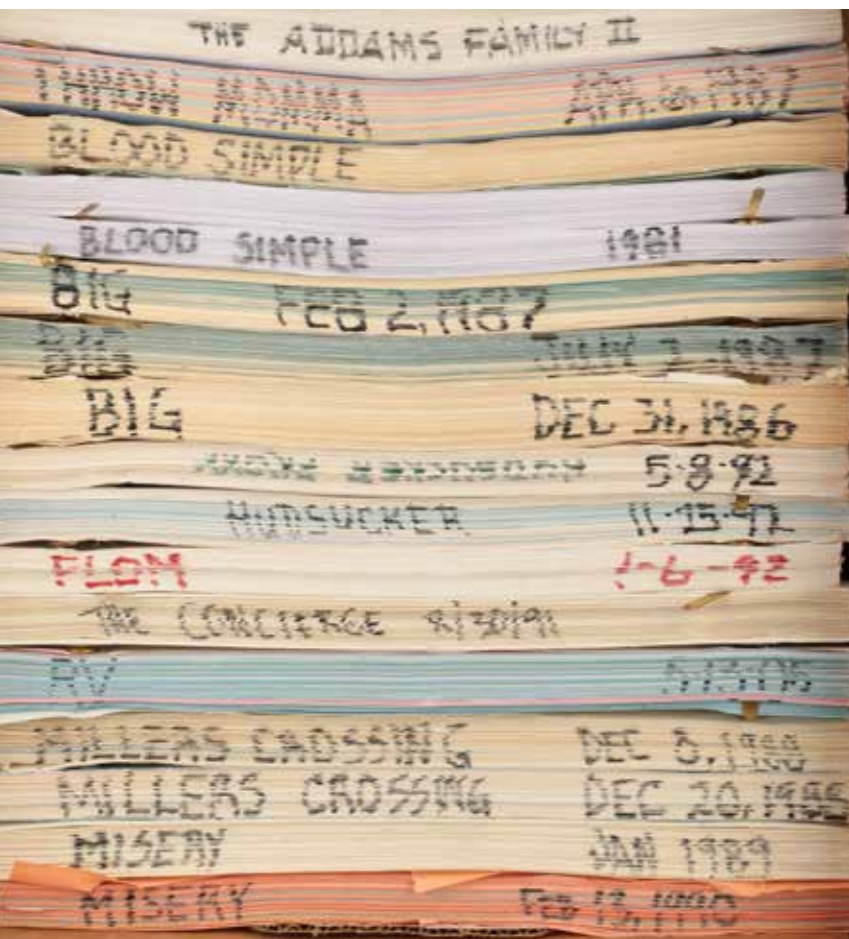 THE ADDAMS FAMILY II
THROW MOMMA APR. 6, 1987
BLOOD SIMPLE
BLOOD SIMPLE 1981
BIG FEB 2, 1987
BIG JULY 1987
BIG DEC 31, 1986
HUDSUCKER PROXY 5-8-92
HUDSUCKER 11-15-92
FLDM 1-6-92
THE CONCIERGE 8/30/91
RV
MILLERS CROSSING DEC 8, 1988
MILLERS CROSSING DEC 20, 1985
MISERY JAN 1989
MISERY FEB 13, 1990